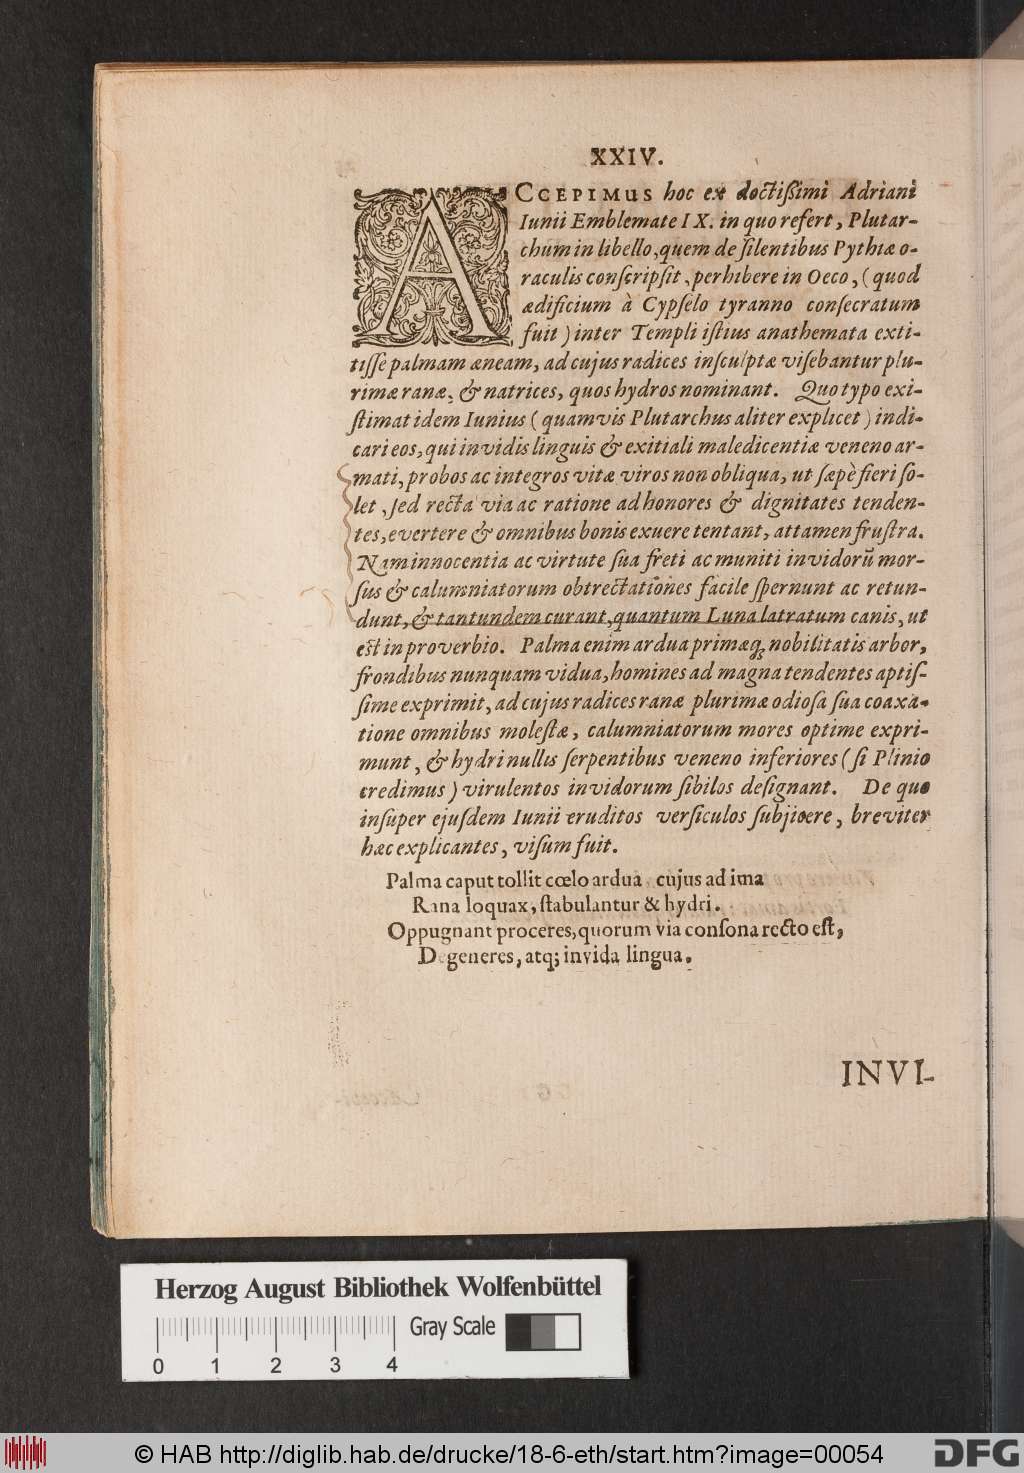 XXIV.
ACCEPIMUS hoc ex doctißimi Adriani
Iunii Emblemate IX. in quo refert, Plutar-
chum in libello, quem de ſilentibus Pythiæ o-
raculis conſcripſit, perhibere in Oeco, (quod
ædificium à Cypſelo tyranno conſecratum
fuit) inter Templi iſtius anathemata exti-
tiſſe palmam æneam, ad cujus radices inſculptæ viſebantur plu-
rimæ ranæ, & natrices, quos hydros nominant. Quo typo exi-
ſtimat idem Iunius (quamvis Plutarchus aliter explicet) indi-
cari eos, qui invidis linguis & exitiali maledicentiæ veneno ar-
mati, probos ac integros vitæ viros non obliqua, ut ſæpè fieri ſo-
let, ſed recta via ac ratione ad honores & dignitates tenden-
tes, evertere & omnibus bonis exuere tentant, attamen fruſtra.
Nam innocentia ac virtute ſua freti ac muniti invidorũ mor-
ſus & calumniatorum obtrectationes facile ſpernunt ac retun-
dunt, & tantundem curant, quantum Luna latratum canis, ut
eſt in proverbio. Palma enim ardua primæq; nobilitatis arbor,
frondibus nunquam vidua, homines ad magna tendentes aptiſ-
ſime exprimit, ad cujus radices ranæ plurimæ odioſa ſua coaxa-
tione omnibus moleſtæ, calumniatorum mores optime expri-
munt, & hydri nullis ſerpentibus veneno inferiores (ſi Plinio
credimus) virulentos invidorum ſibilos deſignant. De quo
inſuper ejuſdem Iunii eruditos verſiculos ſubjicere, breviter
hæc explicantes, viſum fuit.
Palma caput tollit cœlo ardua, cujus ad ima
Rana loquax, ſtabulantur & hydri.
Oppugnant proceres, quorum via conſona recto eſt,
Degeneres, atq; invida lingua.
INVI-
Herzog August Bibliothek Wolfenbüttel
Gray Scale
0 1 2 3 4
© HAB http://diglib.hab.de/drucke/18-6-eth/start.htm?image=00054
DFG